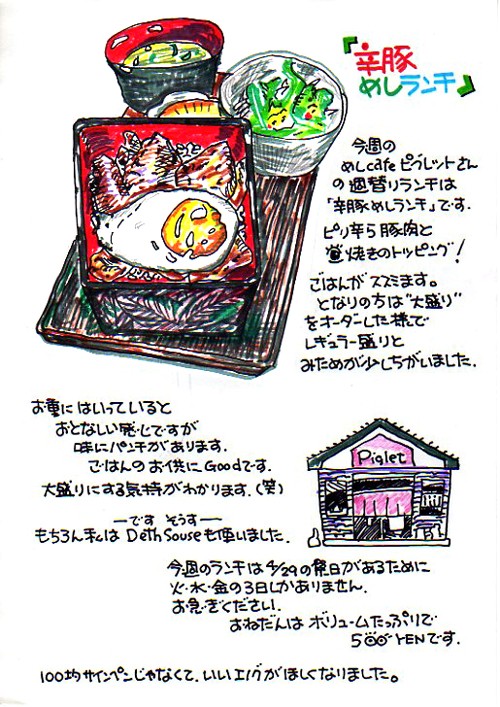 『辛豚
めしランチ』
今週の
めしcafe ピグレットさん
の週替りランチは
「辛豚めしランチ」です.
ピリ辛ら豚肉と
焼きのトッピング!
ごはんがススミます。
となりの方は"大盛り"
をオーダーした様で
レギュラー盛りと
みためが少しちがいました.
お重にはいっていると
おとなしい感じですが
味にパンチがあります.
ごはんのお供にGoodです.
大盛りにする気持がわかります.(笑)
Piglet
―です そうす―
もちろん私は Deth Souseも使いました.
今週のランチは4/29の祭日があるために
火・水・金の3日しかありません.
お急ぎください.
おねだんは ボリュームたっぷりで
500YENです.
100均サインペンじゃなくて、いいエノグがほしくなりました。